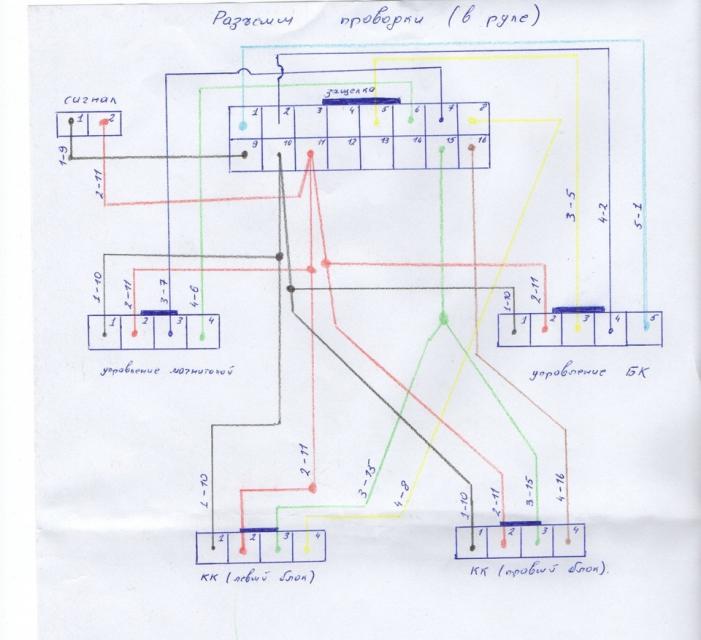 Разъемы проводки (в руле)
сигнал
1 2
1-9
2-11
защелка
1 2 3 4 5 6 7 8
9 10 11 12 13 14 15 16
1-10
2-11
3-7
4-6
1 2 3 4
управление магнитолой
3-5
4-2
5-1
1-10
2-11
1 2 3 4 5
управление БК
1-10
2-11
3-15
4-8
1 2 3 4
КК (левый блок)
1-10
2-11
3-15
4-16
1 2 3 4
КК (правый блок).